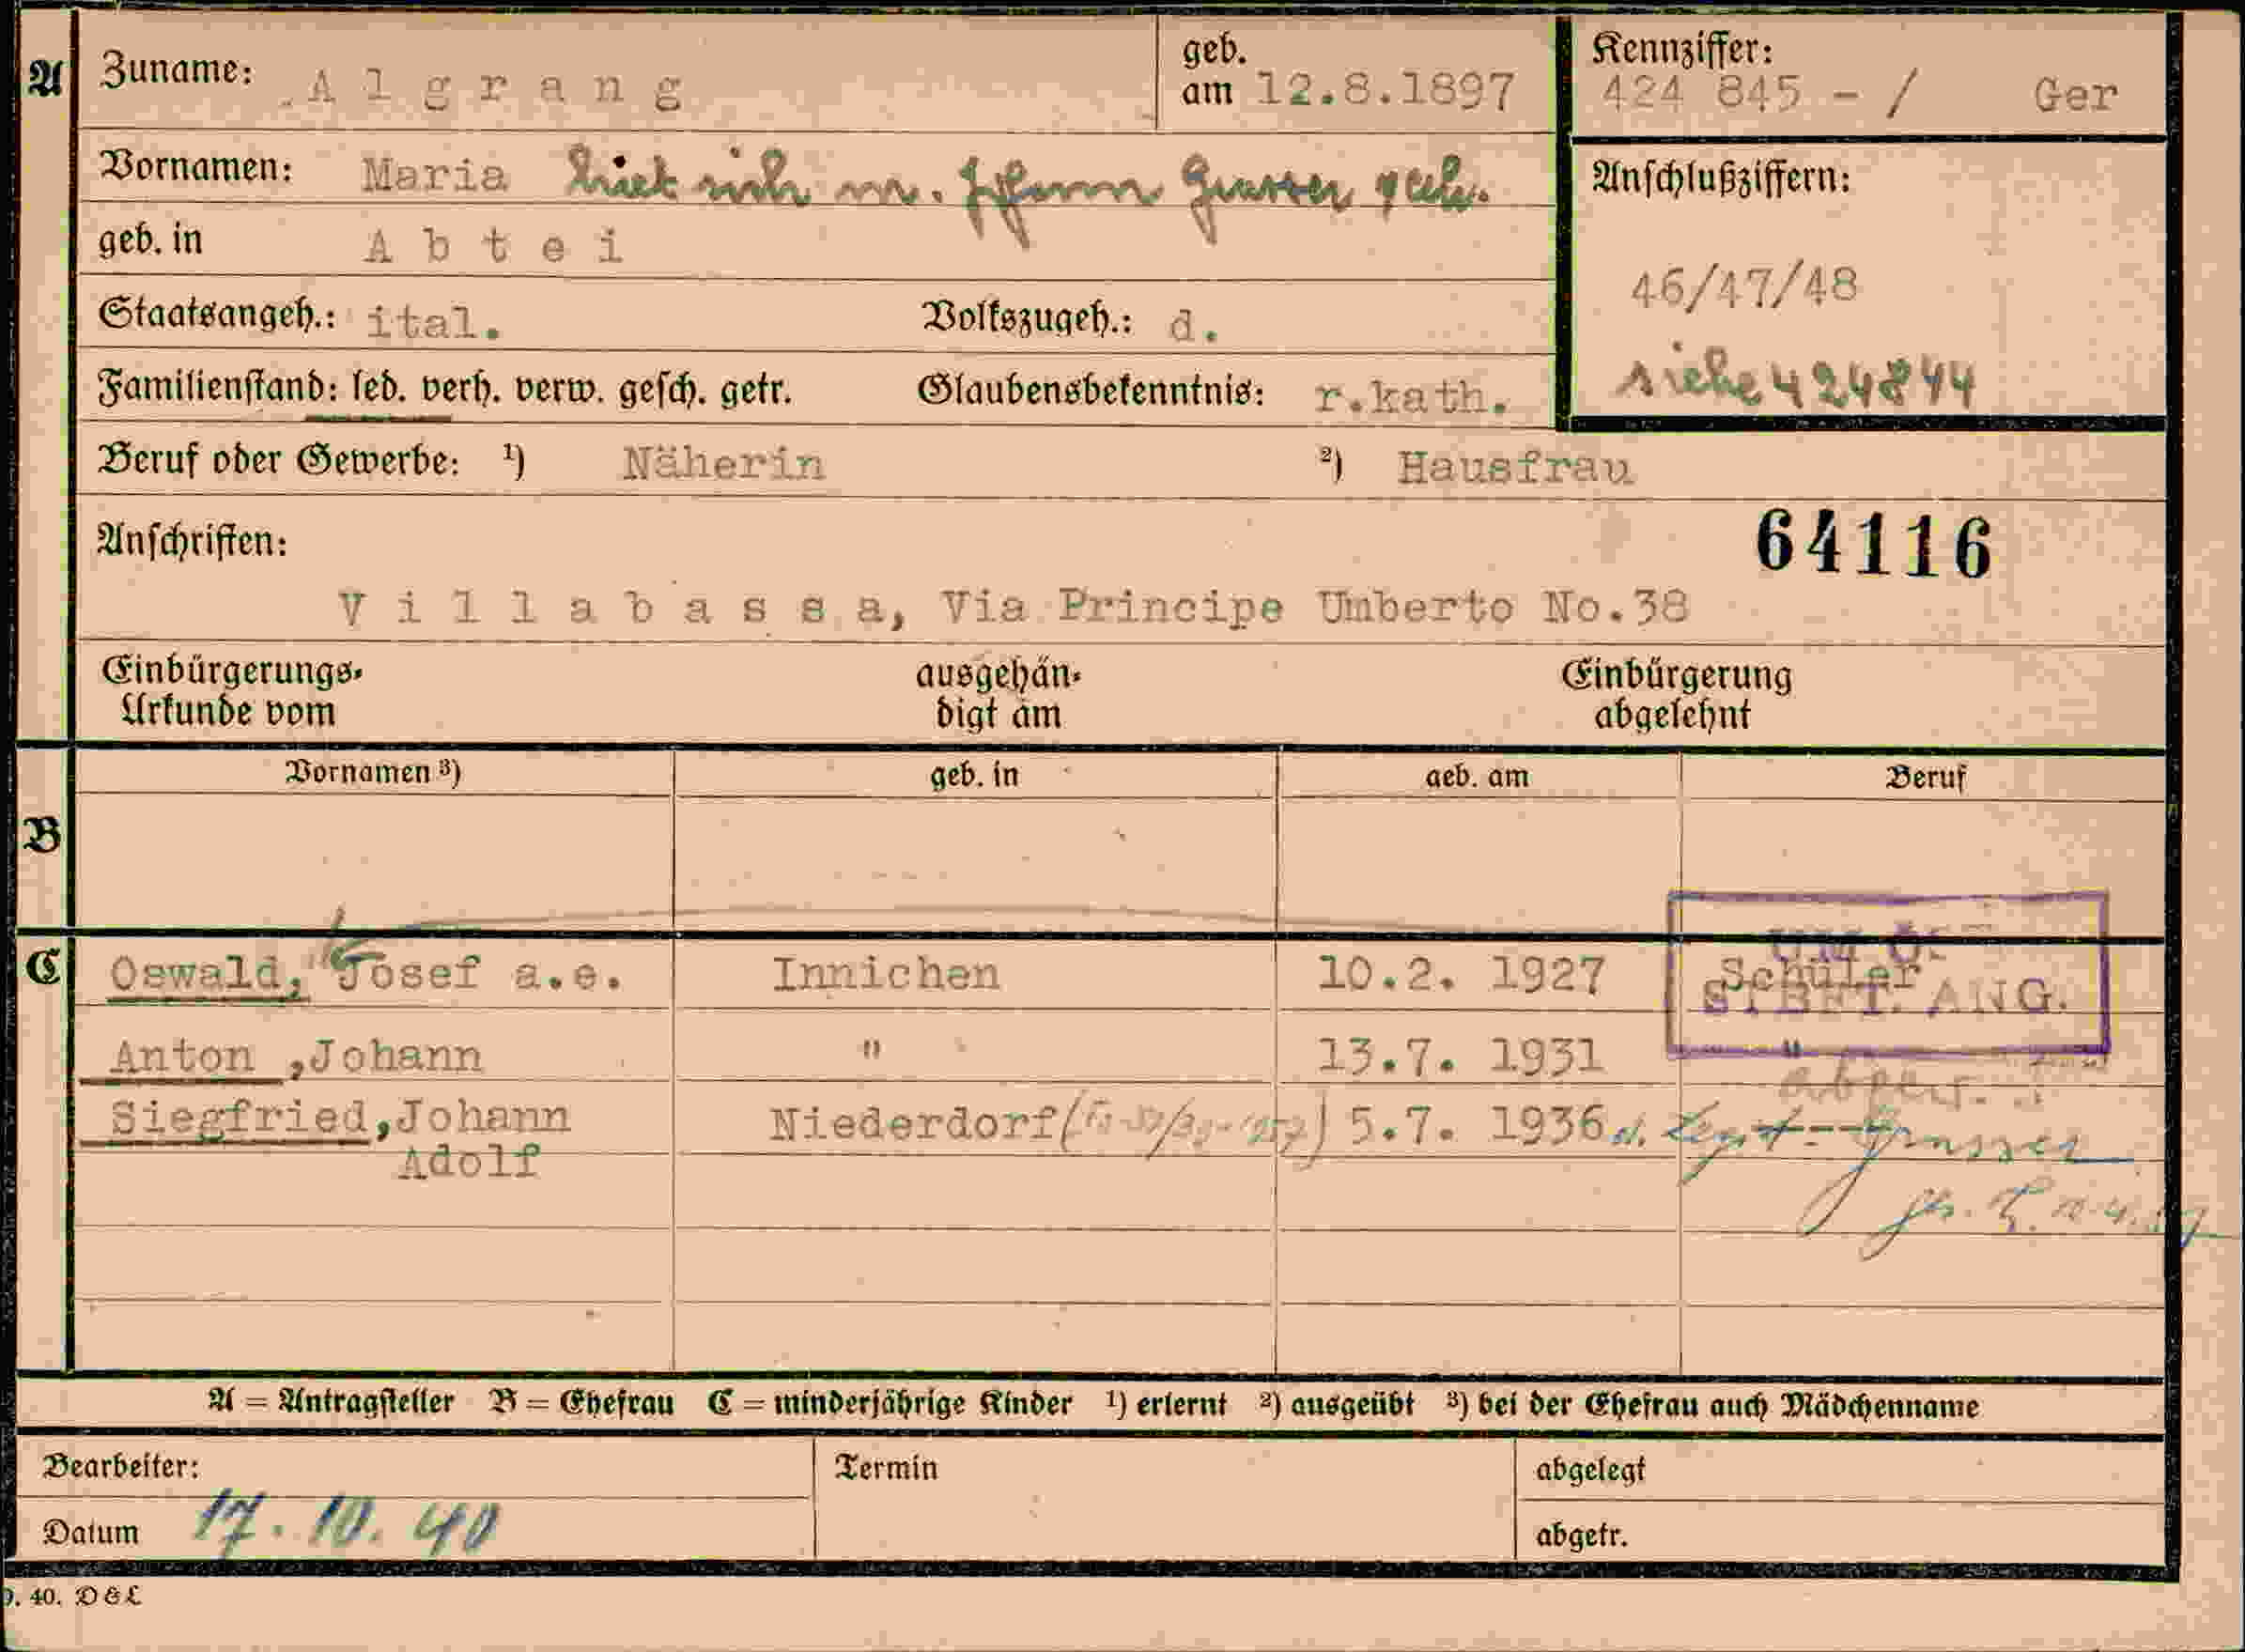 A
Zuname: Algrang
geb. am 12.8.1897
Kennziffer:
424 845 - / Ger
Vornamen: Maria hiet sich m. Johann Grasser
Anschlußziffern:
geb. in Abtei
46/47/48
Staatsangeh.: ital. Volkszugeh.: d.
siehe 424844
Familienstand: led. verh. verw. gesch. getr. Glaubensbekenntnis: r.kath.
Beruf oder Gewerbe: ¹) Näherin ²) Hausfrau
Anschriften:
64116
Villabassa, Via Principe Umberto No.38
Einbürgerungs-
Urkunde vom
ausgehän-
digt am
Einbürgerung
abgelehnt
Vornamen ³) geb. in geb. am Beruf
B
C
Oswald, Josef a.e. Innichen 10.2. 1927 Schüler
UM Ö.
STBFT. ANG.
Anton ,Johann " 13.7. 1931 "
Siegfried,Johann Niederdorf 5.7. 1936 Grasser
Adolf
A = Antragsteller B = Ehefrau C = minderjährige Kinder ¹) erlernt ²) ausgeübt ³) bei der Ehefrau auch Mädchenname
Bearbeiter:
Termin
abgelegt
Datum 17.10.40
abgetr.
9. 40. D&L